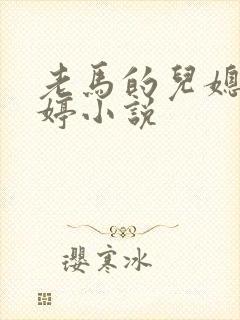 老馬的兒媳
婷小說
瓔寒冰